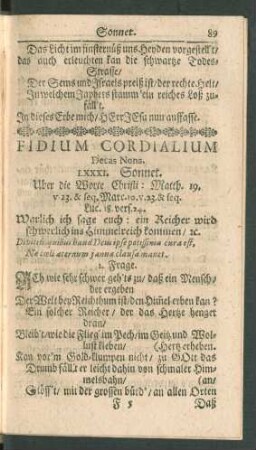 Sonnet. 89
Das Licht im finsternüß uns Heyden vorgestell't/
das auch erleuchten kan die schwartze Todes-
Strasse/
Der Sems und Jsraels preiß ist/ der rechte Helt/
Jn welchem Japhets stamm' ein reiches Loß zu-
fäll't.
Jn dieses Erbe mich/ HErr JEsu nun auffasse.
FIDIUM CORDIALIUM
Decas Nona.
LXXXI. Sonnet.
Uber die Worte Christi: Matth. 19.
v. 23. & seq. Marc. 10. v. 23 & seq.
Luc. 18. vers. 24.
Warlich ich sage euch: ein Reicher wird
schwerlich ins Himmelreich kommen/ ꝛc.
Divitibus, quibus haud Deus ipse potissima cura est,
Ne cœli æternum janua clausa manet.
1. Frage.
ACh wie sehr schwer geh't es zu/ daß ein Mensch/
der ergeben
Der Welt bey Reichthum ist/ den Him̃el erben kan?
Ein solcher Reicher/ der das Hertz henget
dran/
Bleib't/ wie die Flieg' im Pech/ im Geitz und Wol-
lust kleben/ (Hertz erheben.
Kan vor'm Gold-klumpen nicht/ zu GOtt das
Drumb fäll't er leicht dahin von schmaler Him-
melsbahn/ (an/
Stöß't/ mit der grossen bürd'/ an allen Orten
F 5 Daß